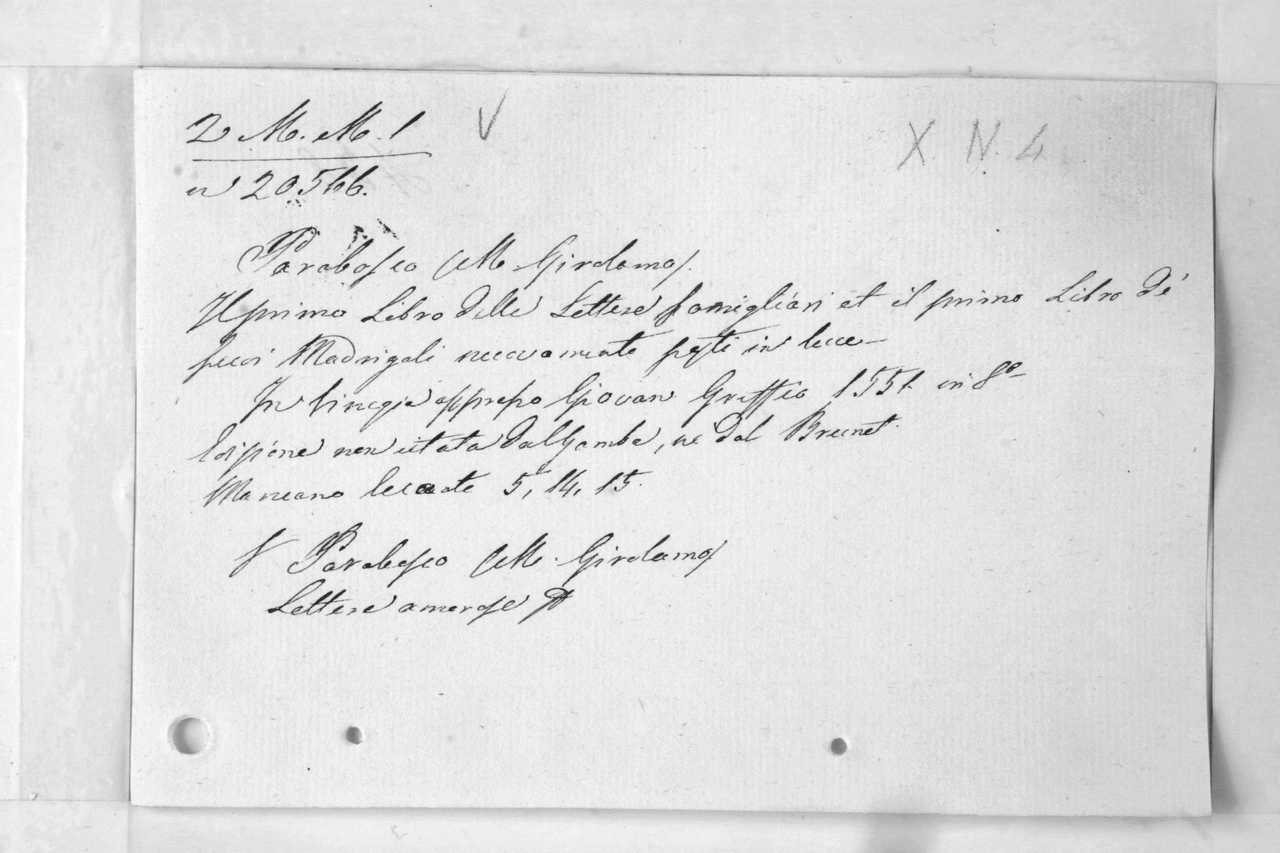 2 M. M. 1 V X. N. 4
n 20566.
Parabosco (M. Girolamo).
Il primo Libro delle Lettere famigliari et il primo Libro de'
suoi Madrigali nuovamente posti in luce—
In Vinegia appresso Giovan Griffio 1551. in 8º
Edizione non citata dal Gamba, ne dal Brunet.
Mancano le carte 5, 14, 15.
Parabosco (M. Girolamo)
Lettere amorose